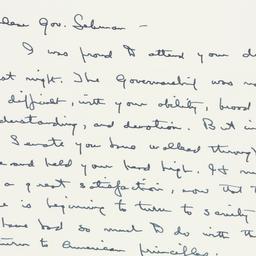 Dear Gov. Lehman –
I was proud to attend your di
st night. The Governorship was no
difficult, with your ability, broad
derstanding, and devotion. But in
Senate you have walked through
and held your head high. It m
a great satisfaction, now that t
e is beginning to turn to sanity
have had so much to do with th
turn to American principles.